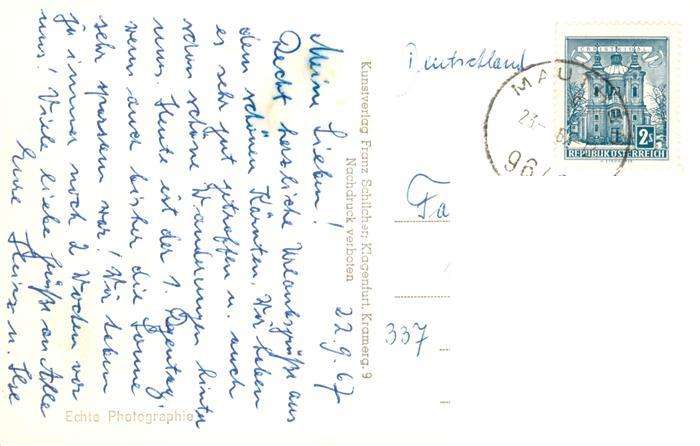 22.9.67
Meine Lieben!
Recht herzliche Urlaubsgrüße aus
dem schönen Kärnten. Wir haben
es sehr gut getroffen u. auch
schon schöne Wanderungen hinter
uns. Heute ist der 1. Regentag,
wenn auch bisher die Sonne
sehr sparsam war! Wir haben
ja immer noch 2 Wochen vor
uns! Viele liebe Grüße an Alle
Eure Heinz u. Ilse
Echte Photographie
Kunstverlag Franz Schilcher, Klagenfurt, Kramerg. 9
Nachdruck verboten
Deutschland
MAU
23.
96
CHRISTKINDL
2S
REPUBLIK ÖSTERREICH
Fa
337